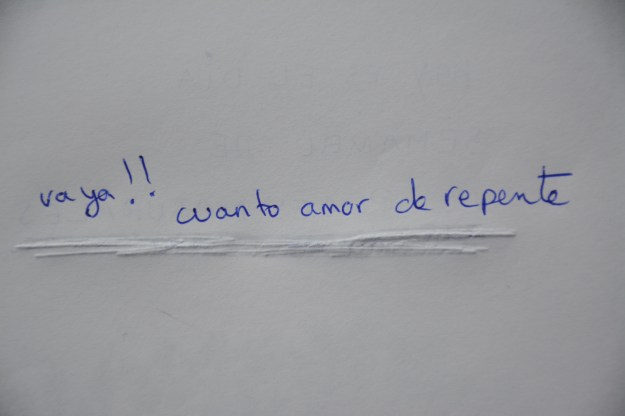 vaya!! cuanto amor de repente